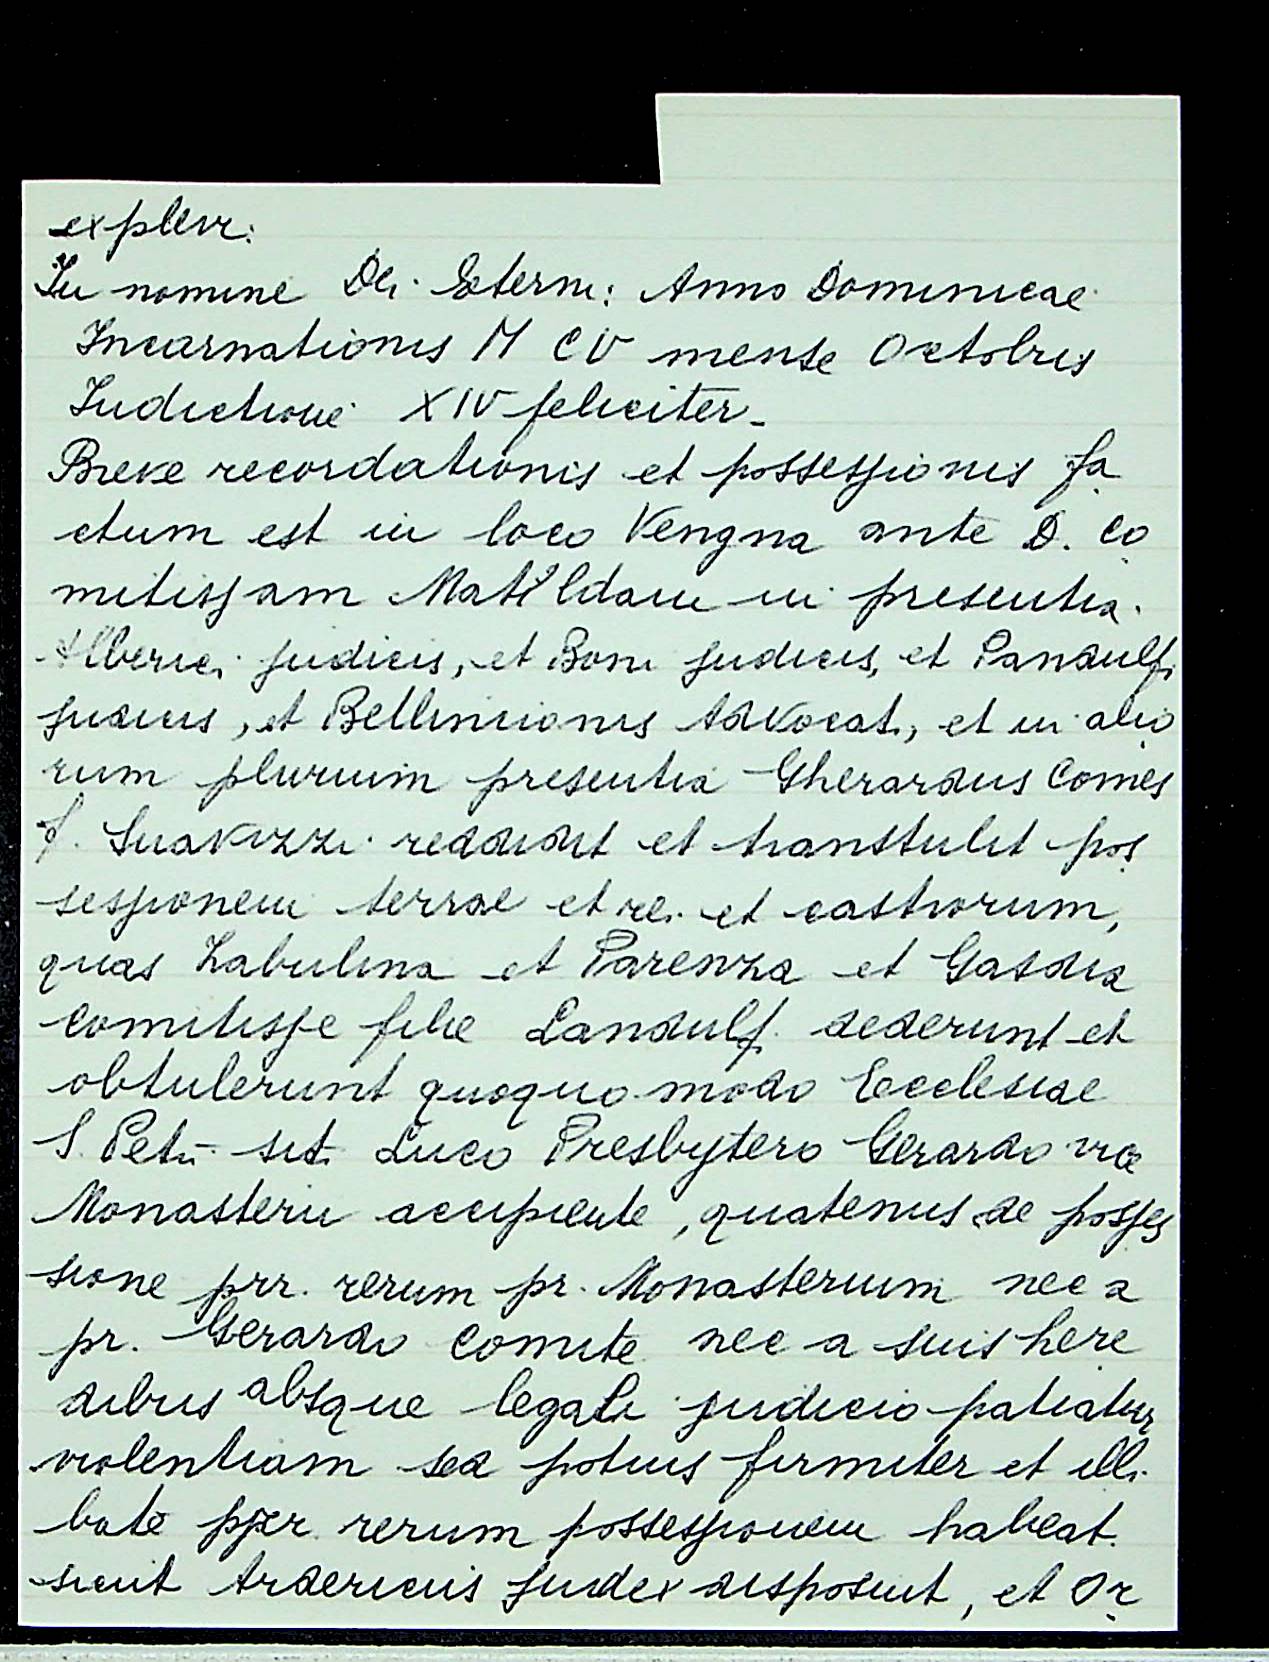 explevi:
In nomine Dei Eterni: Anno Dominicae
Incarnationis M CV mense Octobris
Indictione XIV feliciter_
Breve recordationis et possessionis fa
ctum est in loco Vengna ante D. Co
mitissam Matildam in presentia
Alberici judicis, et Boni judicis, et Pandulfi
judicis, et Bellincionis Advocati, et in alio
rum plurium presentia Gherardus Comes
f. Suavizzi reddidit et transtulit pos
sessionem terrae et rei et castrorum,
quas Zabulina et Parenza et Gasdia
comitisse filie Landulfi dederunt et
obtulerunt quoquo modo Ecclesiae
S. Petri sit. Luco Presbytero Gerardo vice
Monasterii accipiente, quatenus de posses
sione prr. rerum pr. Monasterium nec a
pr. Gerardo Comite nec a suis here
dibus absque legali judicio patiatur
violentiam sed potius firmiter et illi
bate ppr rerum possessionem habeat.
sicut Ardericus judex disposuit, et Or